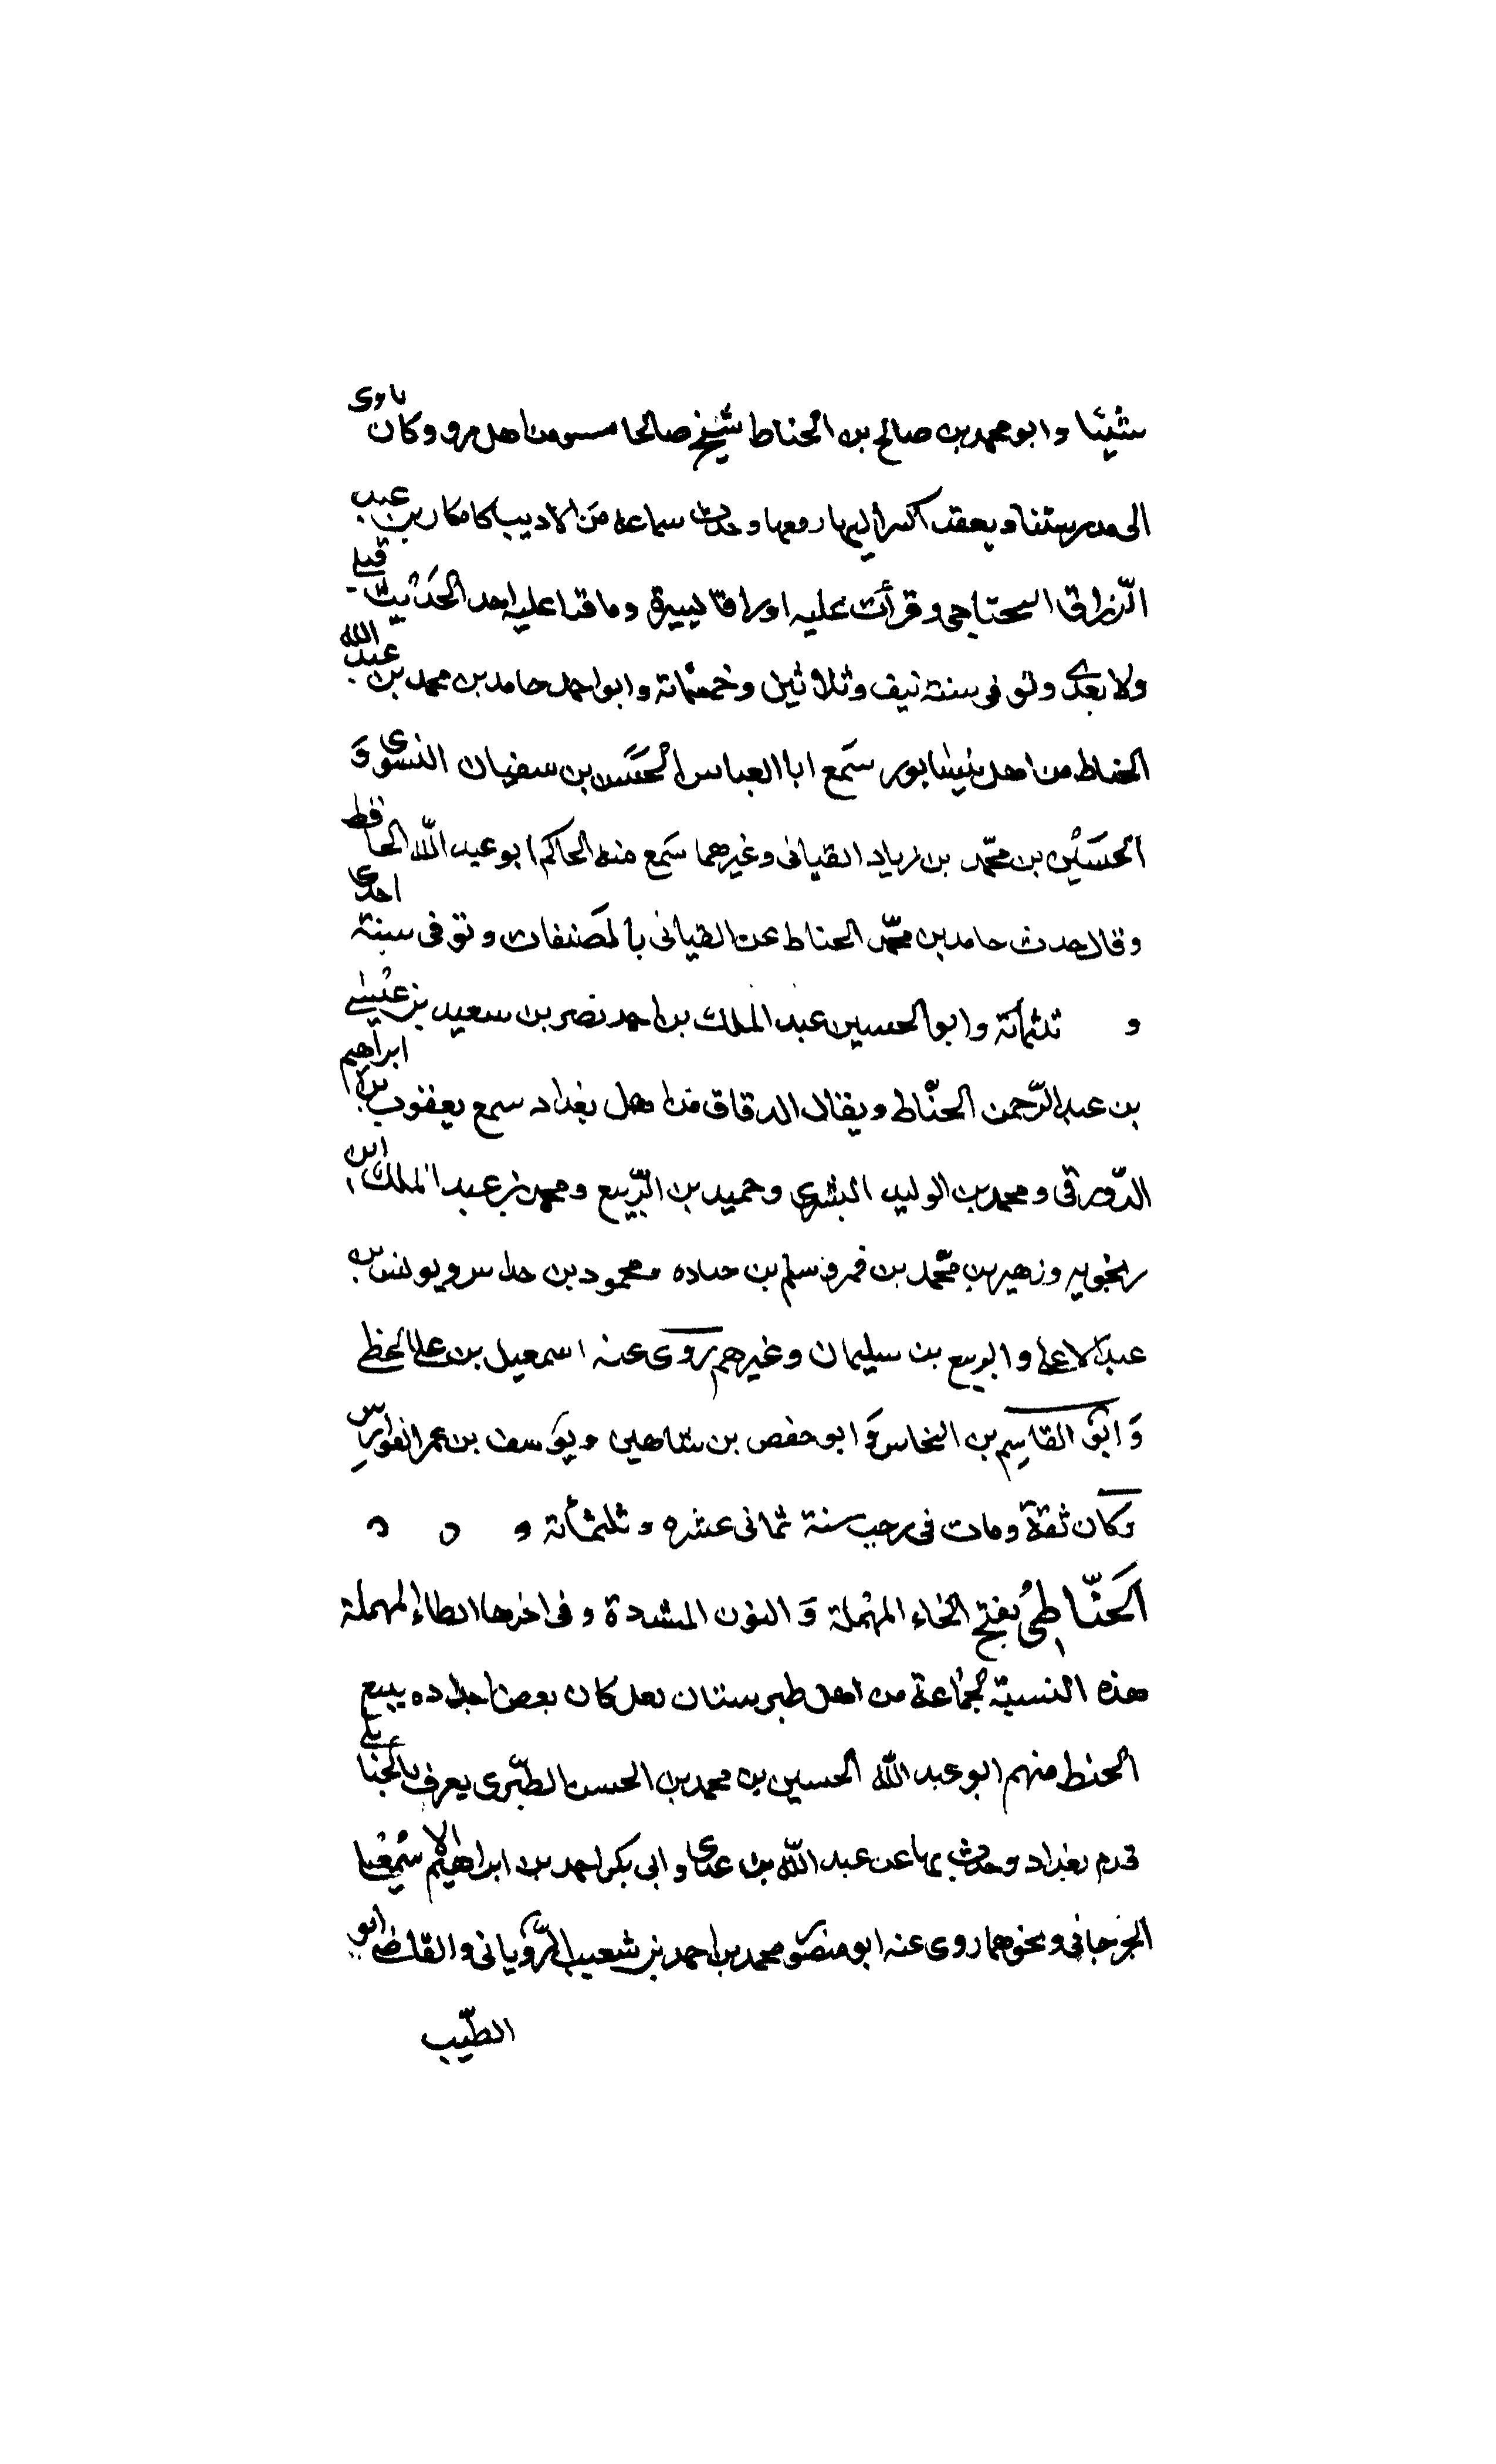 شيئا و ابو محمد بن صالح بن الحناط شيخ صالحا من اهل مرو و كان ياوى
الى مدرستنا و يعقد اليها و معها و حدث سماعه من الاديب كامكار بن عبد
الرزاق المحتاجى و قرأت عليه اوراقا يسيرة و ما قرا عليه احد الحديث قبلى
ولا بعدى و توفى سنة نيف و ثلاثين و خمسمائة و ابو احمد حامد بن محمد بن عبد الله
الحناط من اهل نيسابور سمع ابا العباس الحسن بن سفيان النسوى و
الحسين بن محمد بن زياد القبانى و غيرهما سمع منه الحاكم ابو عبد الله الحافظ
و قال حدث حامد بن محمد الحناط عن القبانى بالمصنفات و توفى سنة احدى
و ثلثمائة و ابو الحسين عبد الملك بن احمد نصر بن سعيد بن عيسى
بن عبد الرحمن الحناط و يقال الدقاق من اهل بغداد سمع يعقوب بن ابراهيم
الدورقى و محمد بن الوليد البشرى و حميد بن الربيع و محمد بن عبد الملك ابن
زنجويه و زهير بن محمد بن قمر و سلم بن جناده و محمود بن خداس و يونس بن
عبد الاعلى و الربيع بن سليمان و غيرهم روى عنه اسمعيل بن على الخطى
و ابو القاسم بن النخاس و ابو حفص بن شاهين و يوسف بن عمر القواس
و كان ثقة و مات فى رجب سنة ثمانى عشره و ثلثمائة و ٥ ٥
الحناطى بفتح الحاء المهملة و النون المشددة و فى اخرها الطاء المهملة
هذه النسبة لجماعة من اهل طبرستان لعل كان بعض اجداده يبيع
الحنط منهم ابو عبد الله الحسين بن محمد بن الحسن الطبرى يعرف بالحناطى
قدم بغداد و حدث بها عن عبد الله بن عدى و ابى بكر احمد بن ابراهيم الاسمعيلى
الجرجانى و نحوهما روى عنه ابو منصور محمد بن احمد بن شعيب الرويانى و القاضى ابو
الطيب